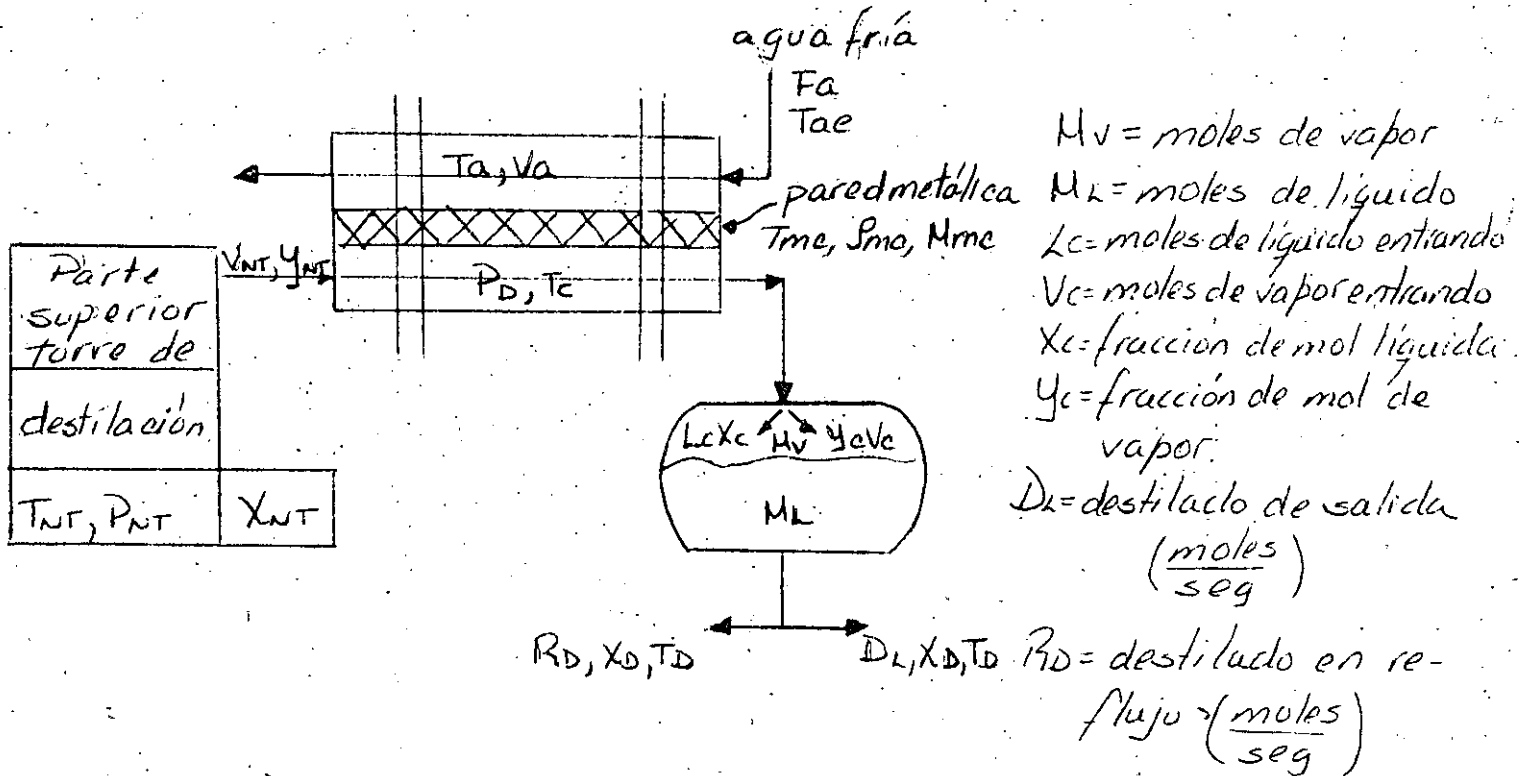 agua fría
Fa
Tae
Ta, Va
pared metálica
Tmc, ρmc, Mmc
VNT, yNT
PD, Tc
Parte
superior
torre de
destilación
TNT, PNT
XNT
LcXc
Mv
ycVc
ML
RD, XD, TD
DL, XD, TD
Mv = moles de vapor
ML = moles de líquido
Lc = moles de líquido entrando
Vc = moles de vapor entrando
Xc = fracción de mol líquida
yc = fracción de mol de
vapor.
DL = destilado de salida
(moles
seg)
RD = destilado en re-
flujo (moles
seg)